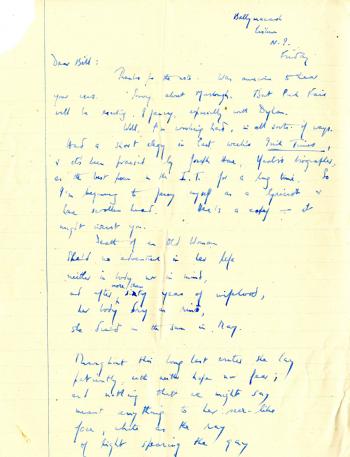 Ballymacash
Lisburn
N. I.
Friday
Dear Bill:
Thanks for the note. Was anxious to hear
your news. Sorry about
will be exciting, I fancy, especially with Dylan.
Well, I'm working hard, in all sorts of ways.
Had a short elegy in last week's Irish Times,
& it's been praised by Joseph Hone, Yeats's biographer,
as the best poem in the I.T. for a long time. So
I'm beginning to fancy myself as a lyricist &
have swollen head. Here's a copy — it
might interest you.
Death of an Old Woman
She'd no adventure in her life
neither in body nor in mind,
and after more than sixty years of wifehood,
her body dry as rind,
she died in the sun in May.
Throughout this long last winter she lay
patiently, with neither hope nor fear;
and nothing that we might say
meant anything to her
face, white as the ray
of light spearing the grey